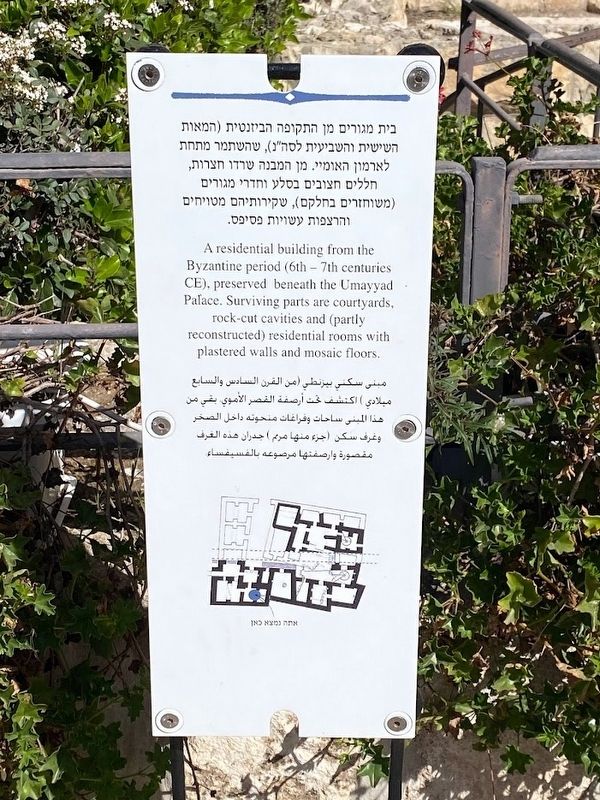 בית מגורים מן התקופה הביזנטית (המאות
השישית והשביעית לסה"נ), שהשתמר מתחת
לארמון האומיי. מן המבנה שרדו חצרות,
חללים חצובים בסלע וחדרי מגורים
(משוחזרים בחלקם), שקירותיהם מטויחים
והרצפות עשויות פסיפס.
A residential building from the
Byzantine period (6th – 7th centuries
CE), preserved beneath the Umayyad
Palace. Surviving parts are courtyards,
rock-cut cavities and (partly
reconstructed) residential rooms with
plastered walls and mosaic floors.
مبنى سكني بيزنطي (من القرن السادس والسابع
ميلادي ) اكتشف تحت أرصفة القصر الأموي. بقي من
هذا المبنى ساحات وفراغات منحوته داخل الصخر
وغرف سكن (جزء منها مرمم ) جدران هذه الغرف
مقصورة وارصفتها مرصوعه بالفسيفساء.
אתה נמצא כאן